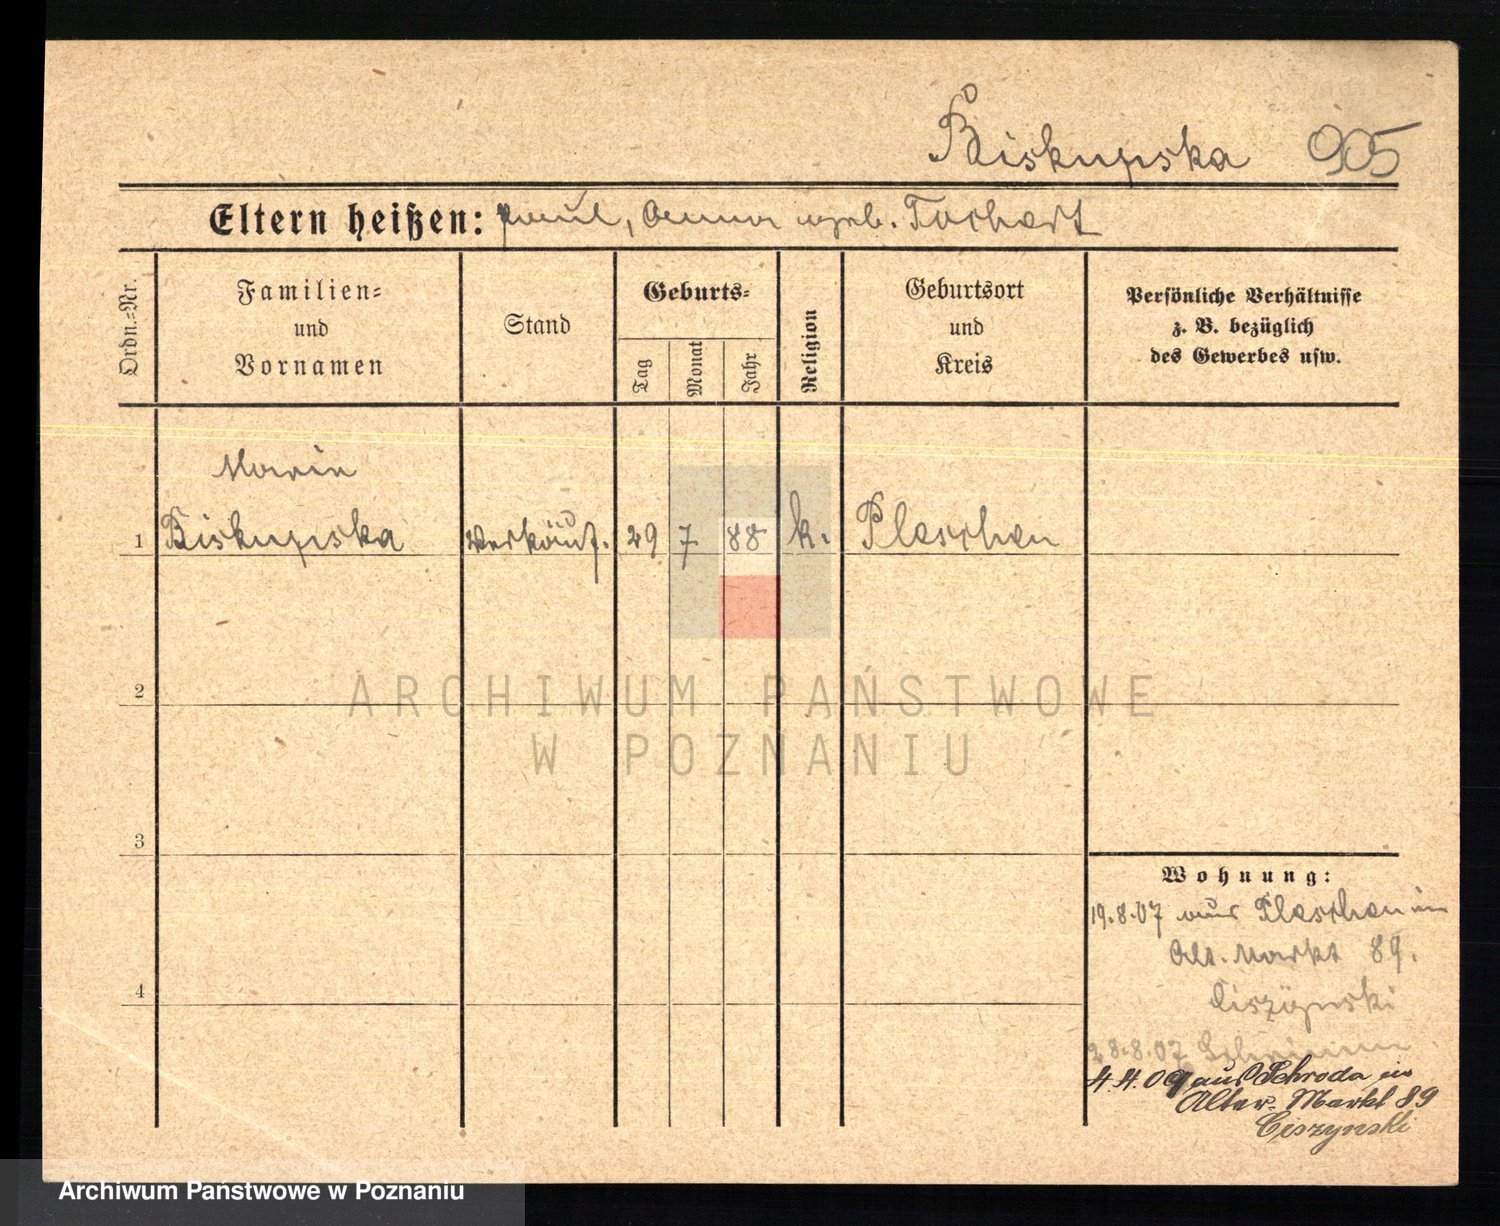 Biskupska 905
Eltern heißen: Paul, Anna geb. Tochart
Ordn.-Nr.
Familien-
und
Vornamen
Stand
Geburts-
Tag
Monat
Jahr
Religion
Geburtsort
und
Kreis
Persönliche Verhältnisse
z. B. bezüglich
des Gewerbes usw.
Marie
1 Biskupska Verkäuf. 29 7 88 k. Pleschen
2
ARCHIWUM PAŃSTWOWE
W POZNANIU
3
Wohnung:
19.8.07 aus Pleschen in
Alt. Markt 89.
Ciszynski
4
28.8.07 Schrimm
4.4.09 aus Schroda in
Alter Markt 89
Ciszynski
Archiwum Państwowe w Poznaniu